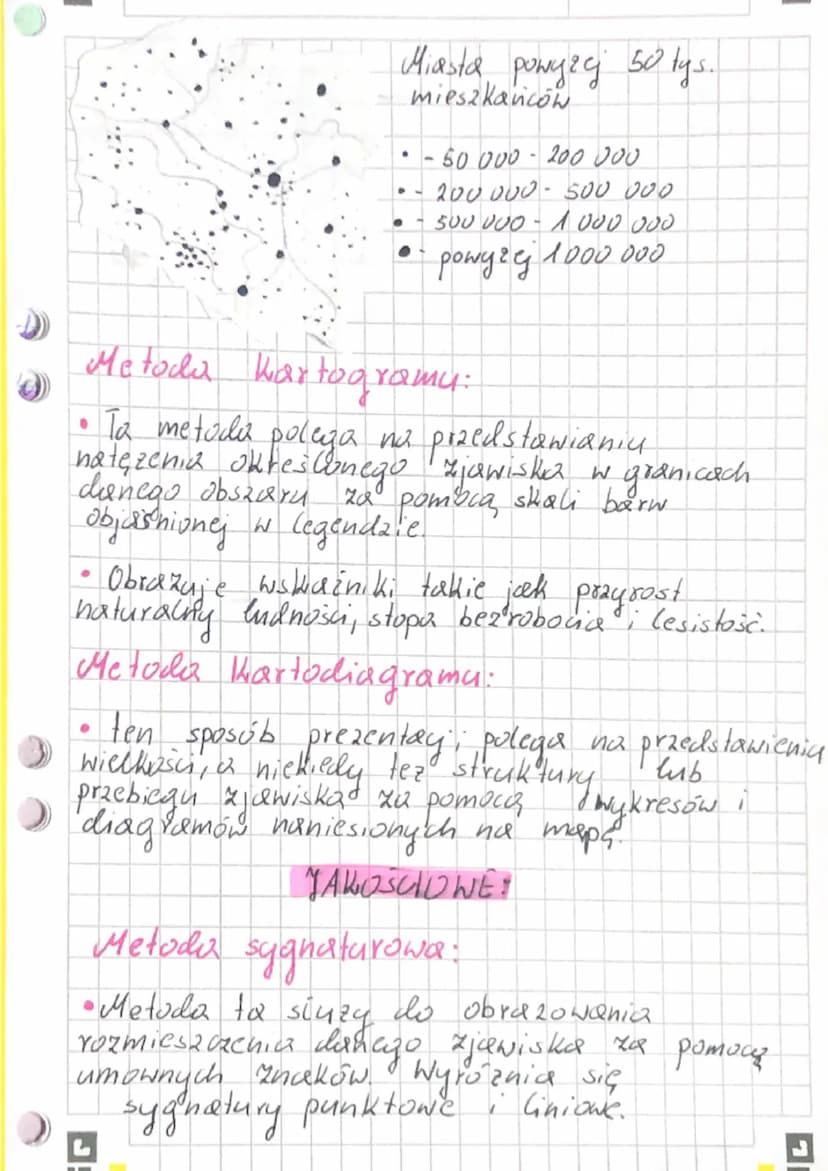 Miasta powyżej 50 tys.
mieszkańców
• - 50 000 - 200 000
• - 200 000 - 500 000
• - 500 000 - 1 000 000
• - powyżej 1 000 000
Metoda kartogramu:
• Ta metoda polega na przedstawianiu
natężenia określonego zjawiska w granicach
danego obszaru za pomocą skali barw
objaśnionej w legendzie.
• Obrazuje wskaźniki takie jak przyrost
naturalny ludności, stopa bezrobocia i lesistość.
Metoda kartodiagramu:
• ten sposób prezentacji polega na przedstawieniu
wielkości, a niekiedy też struktury lub
przebiegu zjawiska za pomocą wykresów i
diagramów naniesionych na mapę.
JAKOŚCIOWE:
Metoda sygnaturowa:
• Metoda ta służy do obrazowania
rozmieszczenia danego zjawiska za pomocą
umownych znaków. Wyróżnia się
sygnatury punktowe i liniowe.